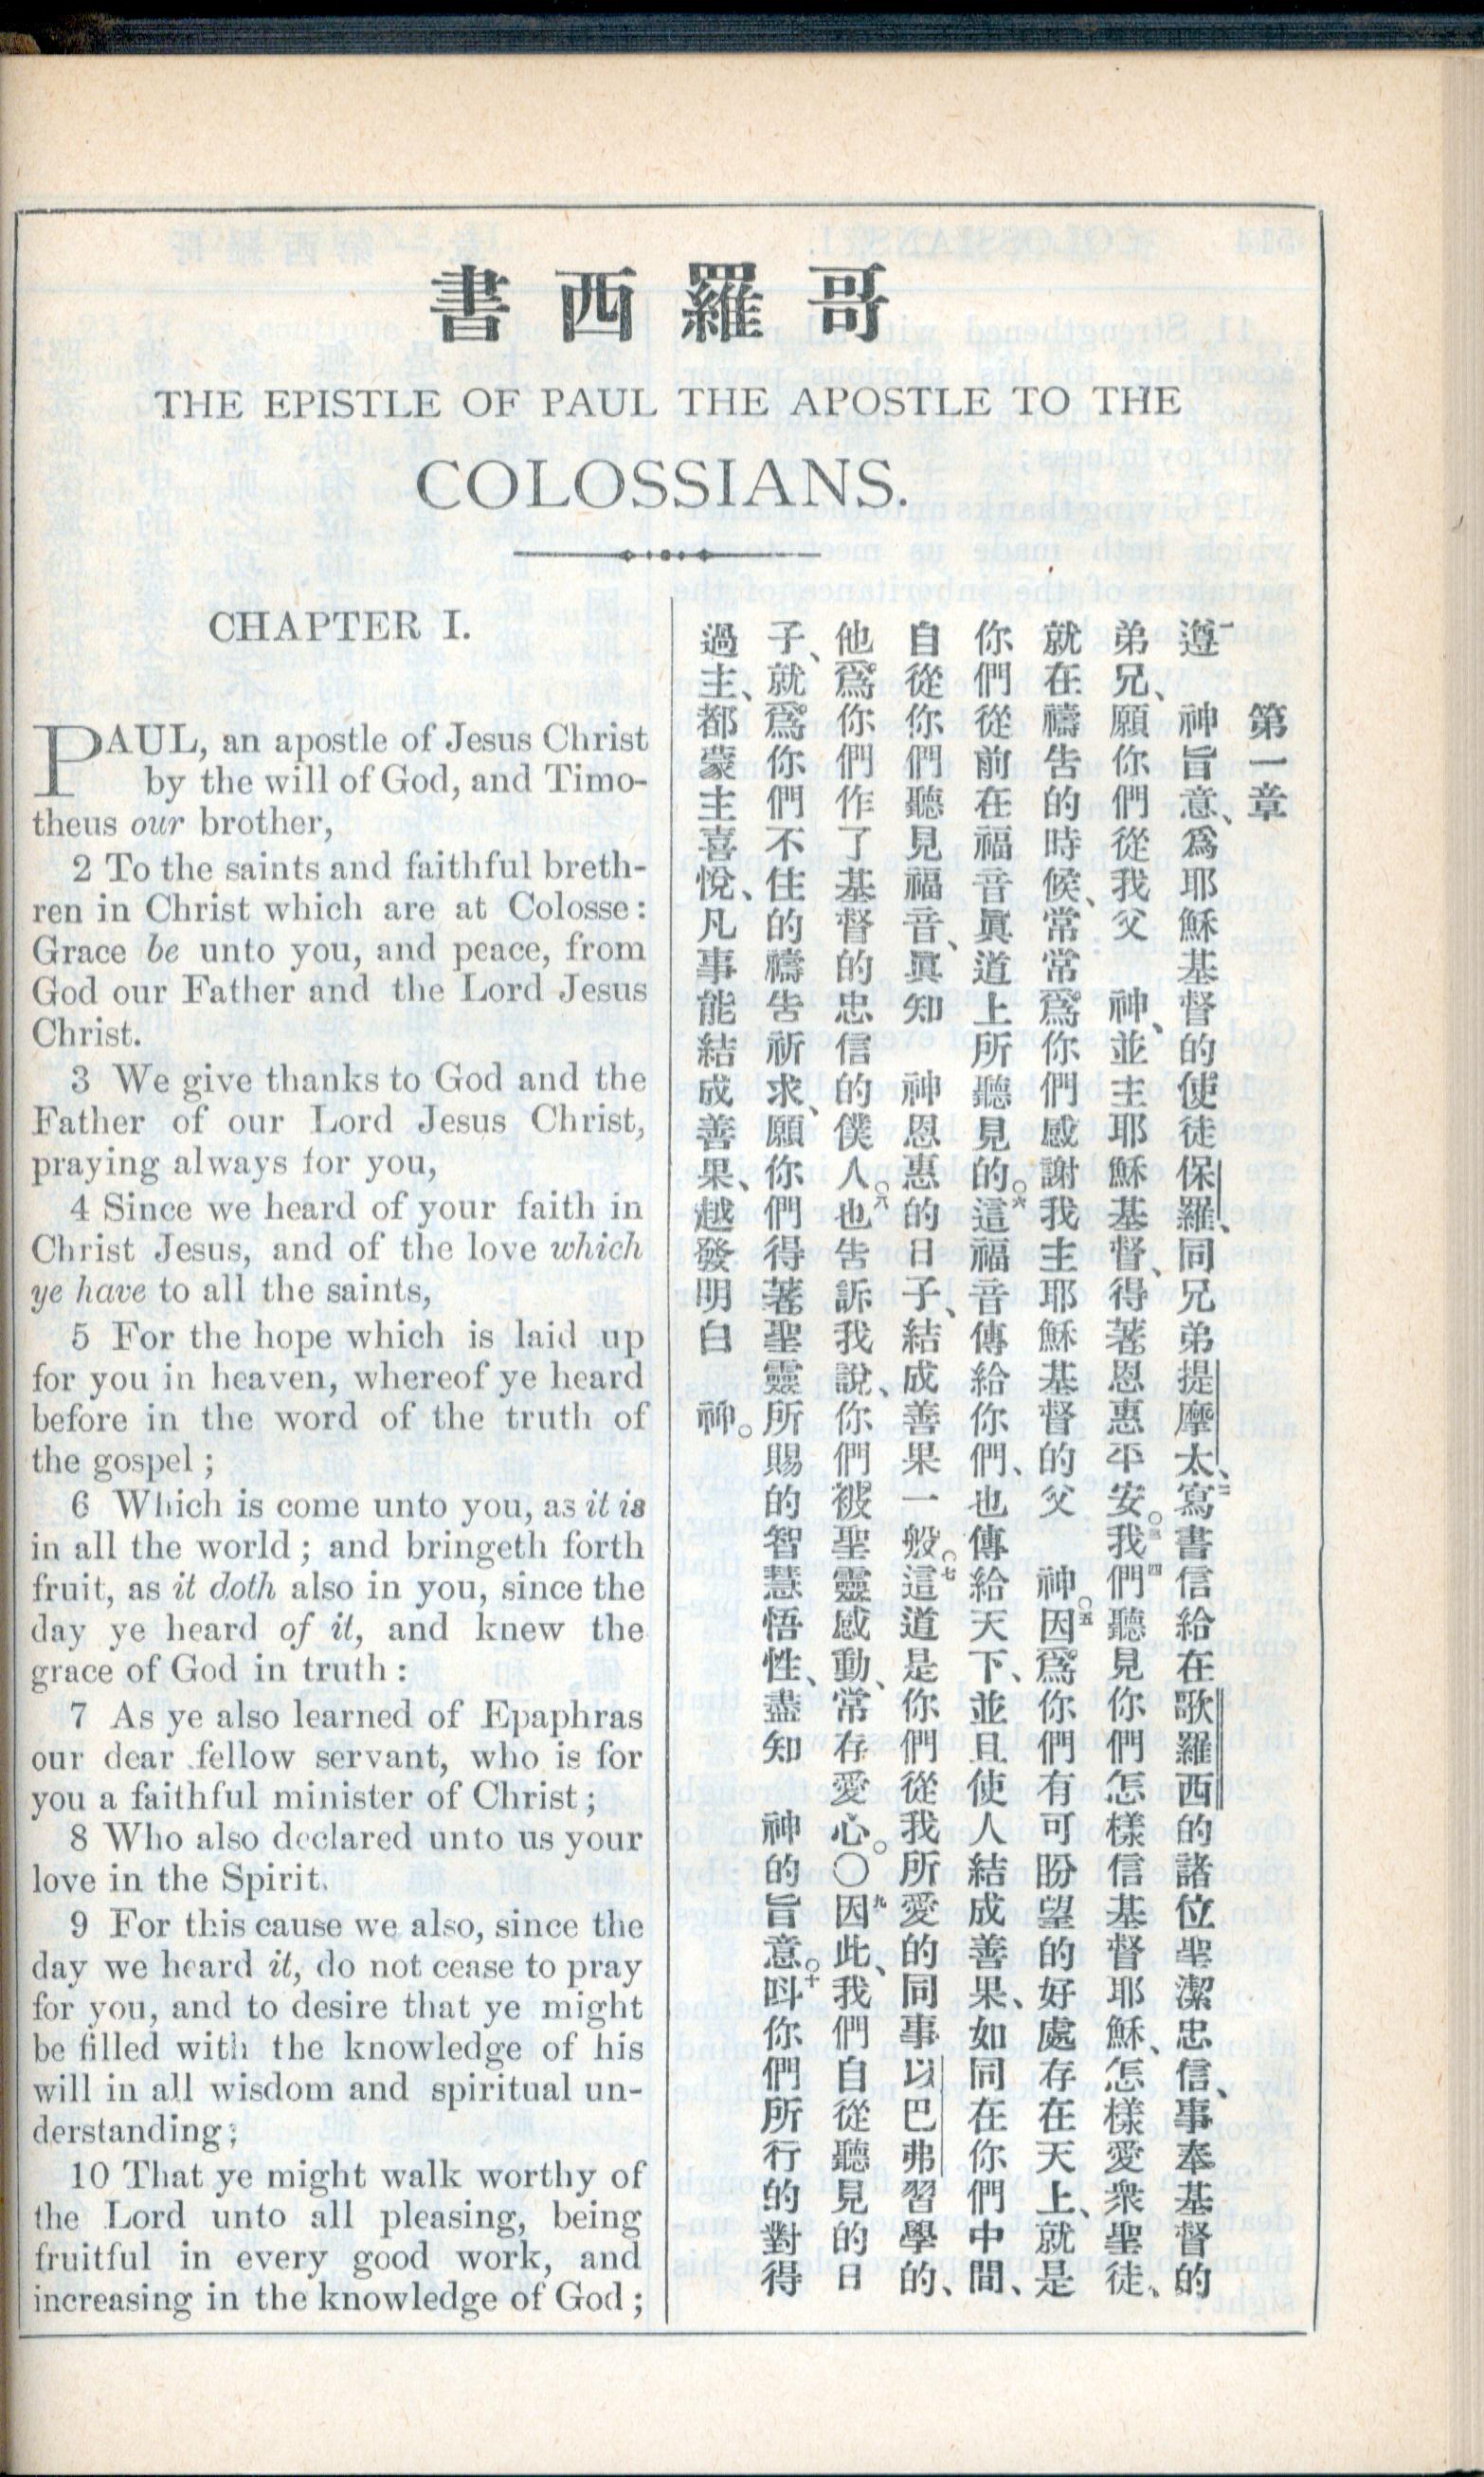 書西羅哥
THE EPISTLE OF PAUL THE APOSTLE TO THE
COLOSSIANS.
CHAPTER I.
PAUL, an apostle of Jesus Christ
by the will of God, and Timo-
theus our brother,
2 To the saints and faithful breth-
ren in Christ which are at Colosse:
Grace be unto you, and peace, from
God our Father and the Lord Jesus
Christ.
3 We give thanks to God and the
Father of our Lord Jesus Christ,
praying always for you,
4 Since we heard of your faith in
Christ Jesus, and of the love which
ye have to all the saints,
5 For the hope which is laid up
for you in heaven, whereof ye heard
before in the word of the truth of
the gospel;
6 Which is come unto you, as it is
in all the world; and bringeth forth
fruit, as it doth also in you, since the
day ye heard of it, and knew the
grace of God in truth:
7 As ye also learned of Epaphras
our dear fellow servant, who is for
you a faithful minister of Christ;
8 Who also declared unto us your
love in the Spirit.
9 For this cause we also, since the
day we heard it, do not cease to pray
for you, and to desire that ye might
be filled with the knowledge of his
will in all wisdom and spiritual un-
derstanding;
10 That ye might walk worthy of
the Lord unto all pleasing, being
fruitful in every good work, and
increasing in the knowledge of God;
第一章
一遵 神旨意、爲耶穌基督的使徒保羅、同兄弟提摩太、二寫書信給在歌羅西的諸位聖潔忠信、事奉基督的
弟兄、願你們從我父 神、並主耶穌基督、得著恩惠平安。三四我們聽見你們怎樣信基督耶穌、怎樣愛衆聖徒、
就在禱告的時候、常常爲你們感謝我主耶穌基督的父 神。五因爲你們有可盼望的好處存在天上、就是
你們從前在福音眞道上所聽見的。六這福音傳給你們、也傳給天下、並且使人結成善果、如同在你們中間、
自從你們聽見福音、眞知 神恩惠的日子、結成善果一般。七這道是你們從我所愛的同事以巴弗習學的、
他爲你們作了基督的忠信的僕人。八也告訴我說、你們被聖靈感動、常存愛心。〇九因此、我們自從聽見的日
子、就爲你們不住的禱告祈求、願你們得著聖靈所賜的智慧悟性、盡知 神的旨意。十呌你們所行的對得
過主、都蒙主喜悅、凡事能結成善果、越發明白 神。